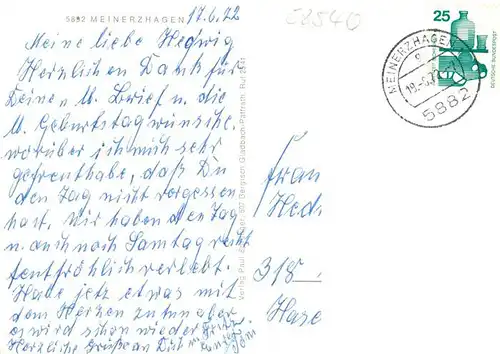 5882 MEINERZHAGEN 17.6.72
Meine liebe Hedwig
Herzlichen Dank für
Deinen l. Brief u. die
l. Geburtstagwünsche.
worüber ich mich sehr
gefreut habe, daß Du
den Tag nicht vergessen
hast. Wir haben den Tag
u. auch noch Samtag recht
fröhlich verlebt.
Habe jetzt etwas mit
dem Herzen zu tun aber
es wird schon wieder
Herzliche Grüße an Dich u. Fritz
Verlag Paul
507 Bergisch Gladbach-Paffrath, Ruf
25
DEUTSCHE BUNDESPOST
MEINERZHAGEN
5882
Frau
Hed
318
Hase